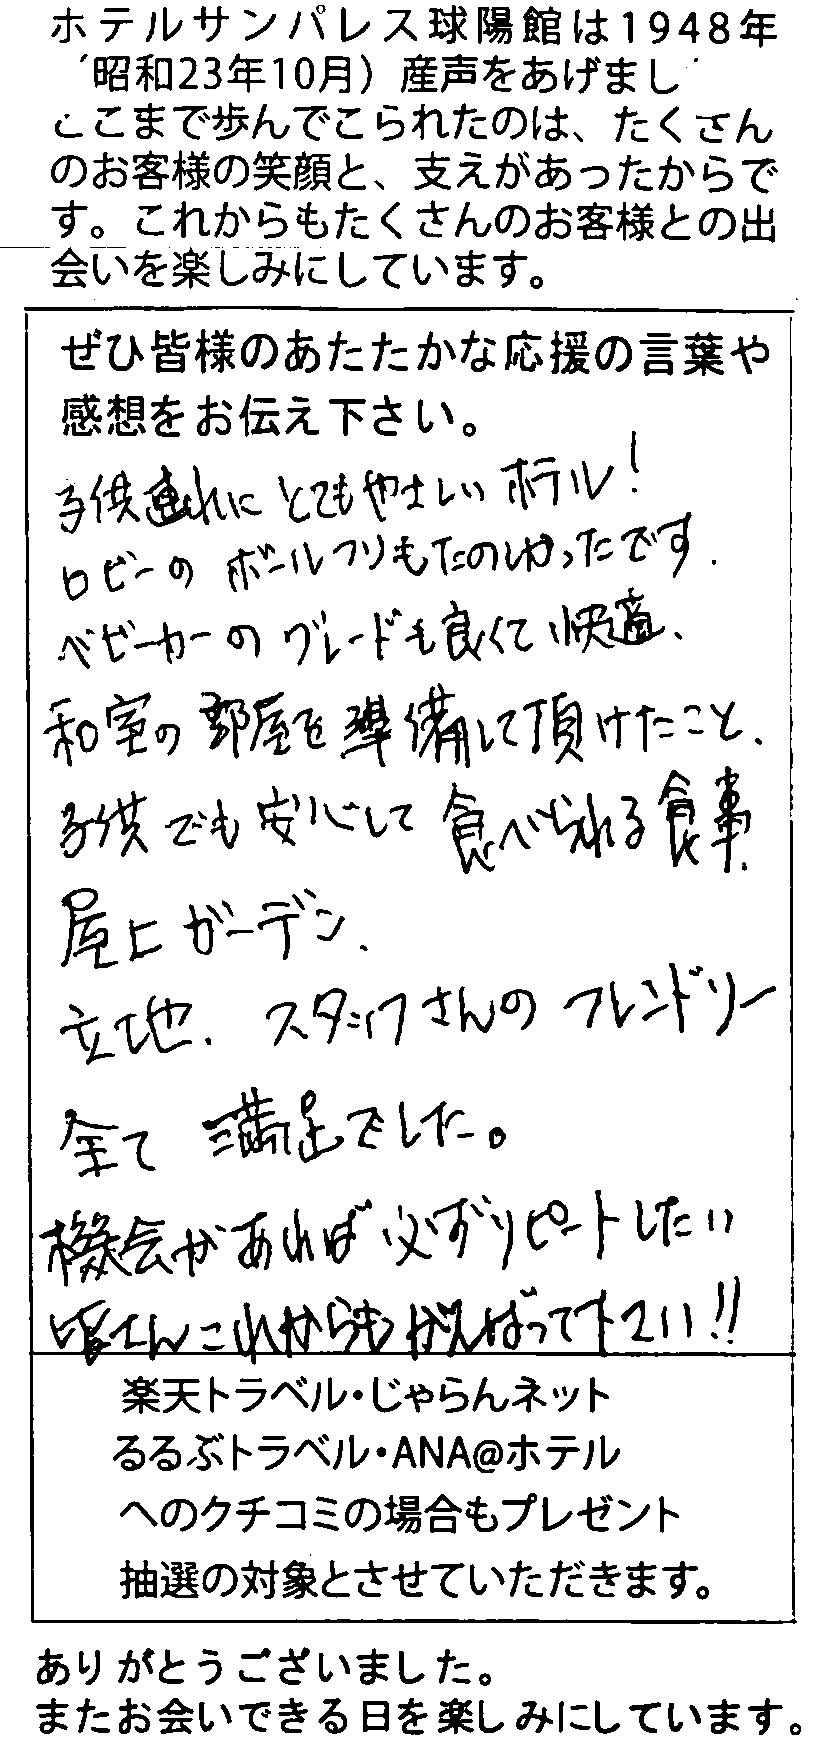 ホテルサンパレス球陽館は1948年
昭和23年10月）産声をあげまし
ここまで歩んでこられたのは、たくさん
のお客様の笑顔と、支えがあったからで
す。これからもたくさんのお客様との出
会いを楽しみにしています。
ぜひ皆様のあたたかな応援の言葉や
感想をお伝え下さい。
子供連れにとてもやさしいホテル！
ロビーのボールつりもたのしかったです.
ベビーカーのグレードも良くて快適、
和室の部屋を準備して頂けたこと、
子供でも安心して食べられる食事、
屋上ガーデン、
立地、スタッフさんのフレンドリー
全て満足でした。
機会があれば必ずリピートしたい
皆さんこれからもがんばって下さい!!
楽天トラベル・じゃらんネット
るるぶトラベル・ANA@ホテル
へのクチコミの場合もプレゼント
抽選の対象とさせていただきます。
ありがとうございました。
またお会いできる日を楽しみにしています。